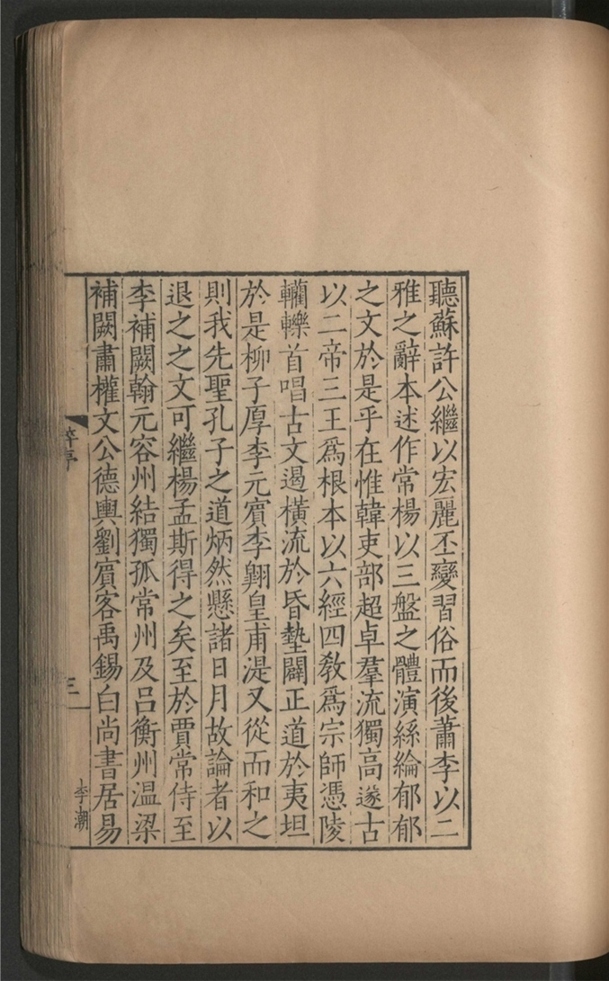 聽蘇許公繼以宏麗丕變習俗而後蕭李以二
雅之辭本述作常楊以三盤之體演絲綸郁郁
之文於是乎在惟韓吏部超卓羣流獨高遂古
以二帝三王爲根本以六經四敎爲宗師憑陵
轥轢首唱古文遏橫流於昏墊闢正道於夷坦
於是柳子厚李元賓李翶皇甫湜又從而和之
則我先聖孔子之道炳然懸諸日月故論者以
退之之文可繼楊孟斯得之矣至於賈常侍至
李補闕翰元容州結獨孤常州及呂衡州温梁
補闕肅權文公德輿劉賓客禹錫白尚書居易
三
李潮